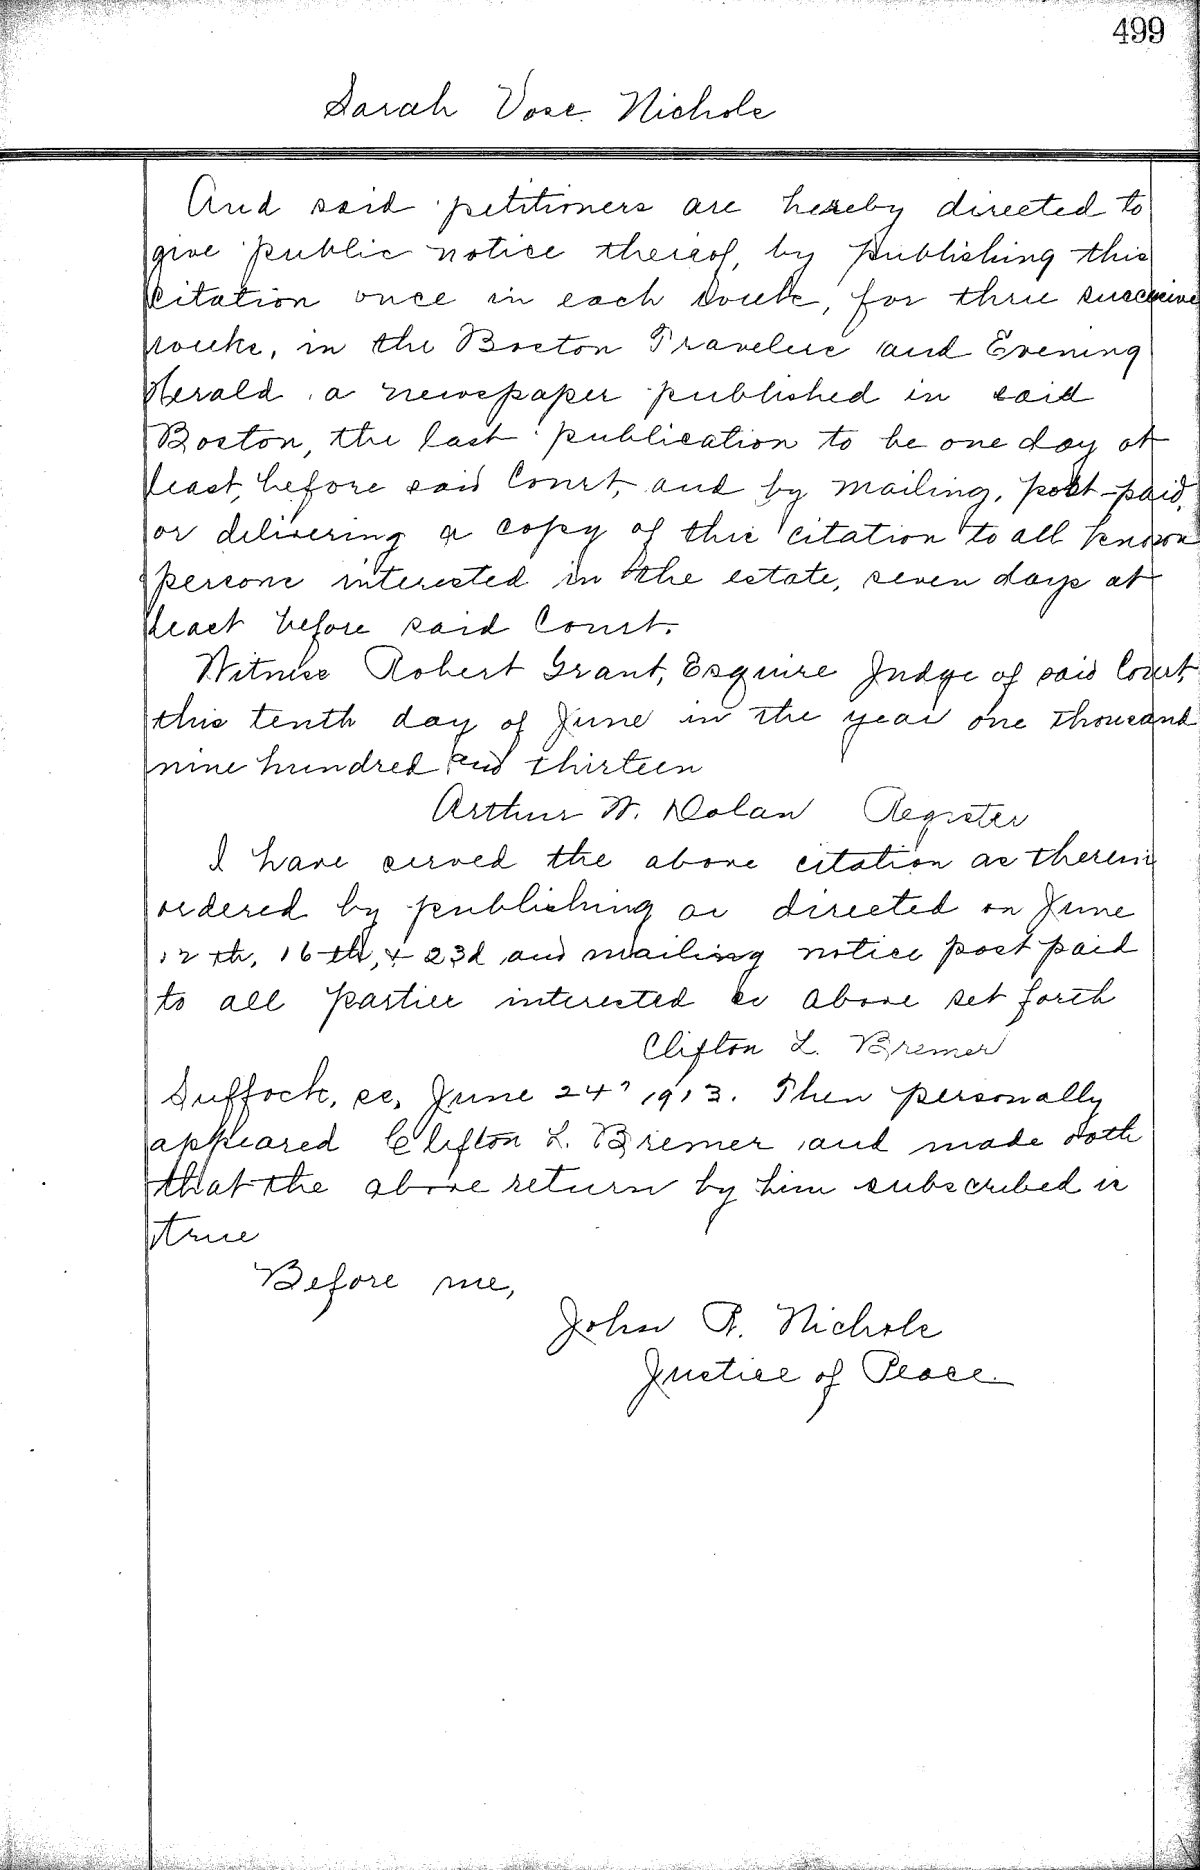 499
Sarah Vose Nichols
And said petitioners are hereby directed to
give public notice thereof, by publishing this
citation once in each week, for three successive
weeks, in the Boston Traveler and Evening
Herald a newspaper published in said
Boston, the last publication to be one day at
least, before said Court, and by mailing, post-paid,
or delivering a copy of this citation to all known
persons interested in the estate, seven days at
least before said Court.
Witness Robert Grant, Esquire Judge of said Court,
this tenth day of June in the year one thousand
nine hundred and thirteen
Arthur W. Dolan Register
I have served the above citation as therein
ordered by publishing as directed on June
12th, 16th, & 23d and mailing notice post paid
to all parties interested as above set forth
Clifton L. Bremer
Suffock, ss, June 24" 1913. Then personally
appeared Clifton L. Bremer and made oath
that the above return by him subscribed is
true
Before me,
John R. Nichols
Justice of Peace.